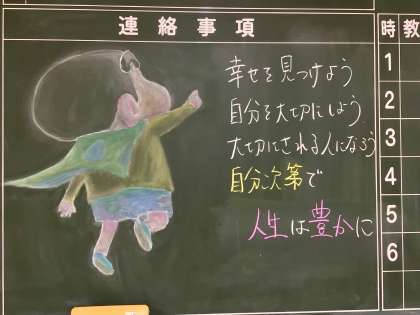 連絡事項
時 教
1
2
3
4
5
6
幸せを見つけよう
自分を大切にしよう
大切にされる人になろう
自分次第で
人生は豊かに